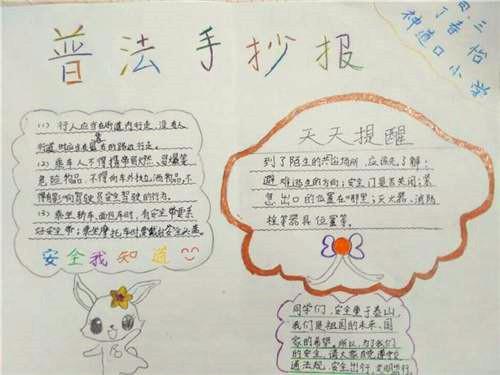 普法手抄报
四、三
丁春怡
神道口小学
(1) 行人应当在街道内行走,没有人
行道时应当在最右的路边行走。
(2) 乘车人不得携带易燃、易爆等
危险物品,不得向车外抛洒物品,不
得有影响驾驶员安全驾驶的行为。
(3) 乘坐轿车、面包车时,有安全带要系
好安全带;乘坐摩托车时要戴好安全头盔。
安全我知道
天天提醒
到了陌生的共公场所,应该先了解:
避难逃生的方向;安全门是否关闭;紧
急出口的位置在哪里;灭火器、消防
栓等器具位置等。
同学们,安全重于泰山,
我们是祖国的未来,国
家的希望。所以,为了我们
的安全,请大家自觉遵守交
通法规,安全出行,文明出行